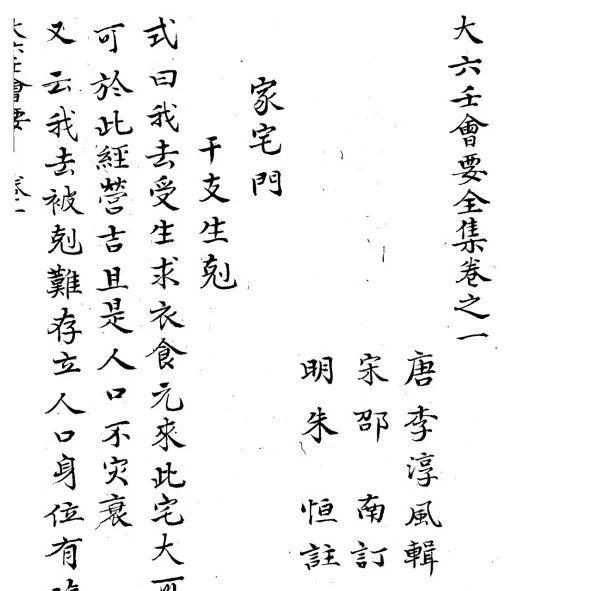 大六壬會要全集卷之一
唐李淳風輯
宋邵南訂
明朱恒註
家宅門
干支生剋
式曰我去受生求衣食元來此宅大可
可於此經營吉且是人口不灾衰
又云我去被剋難存立人口身位有
大六壬會要 卷一